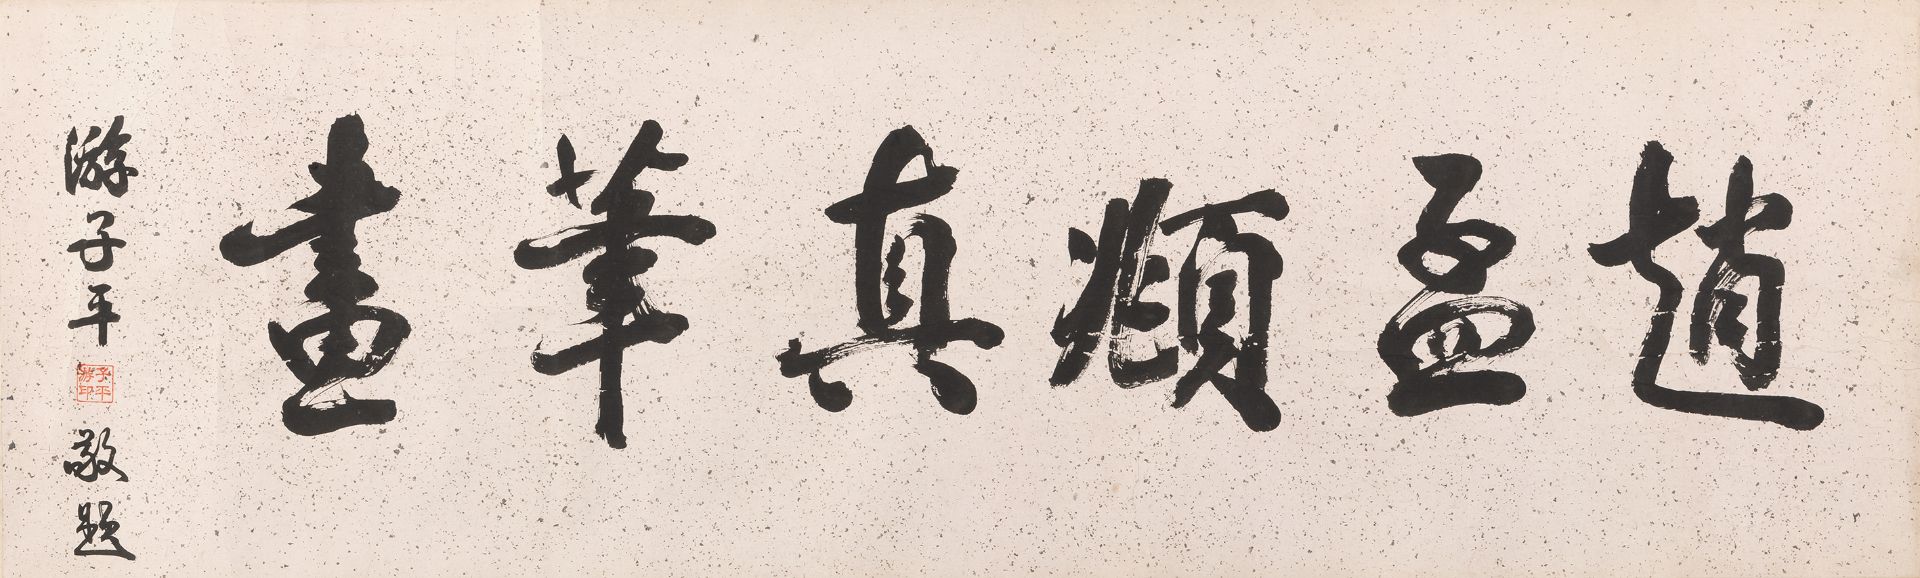 趙孟頫真筆畫
游子平
子平
游印
敬題